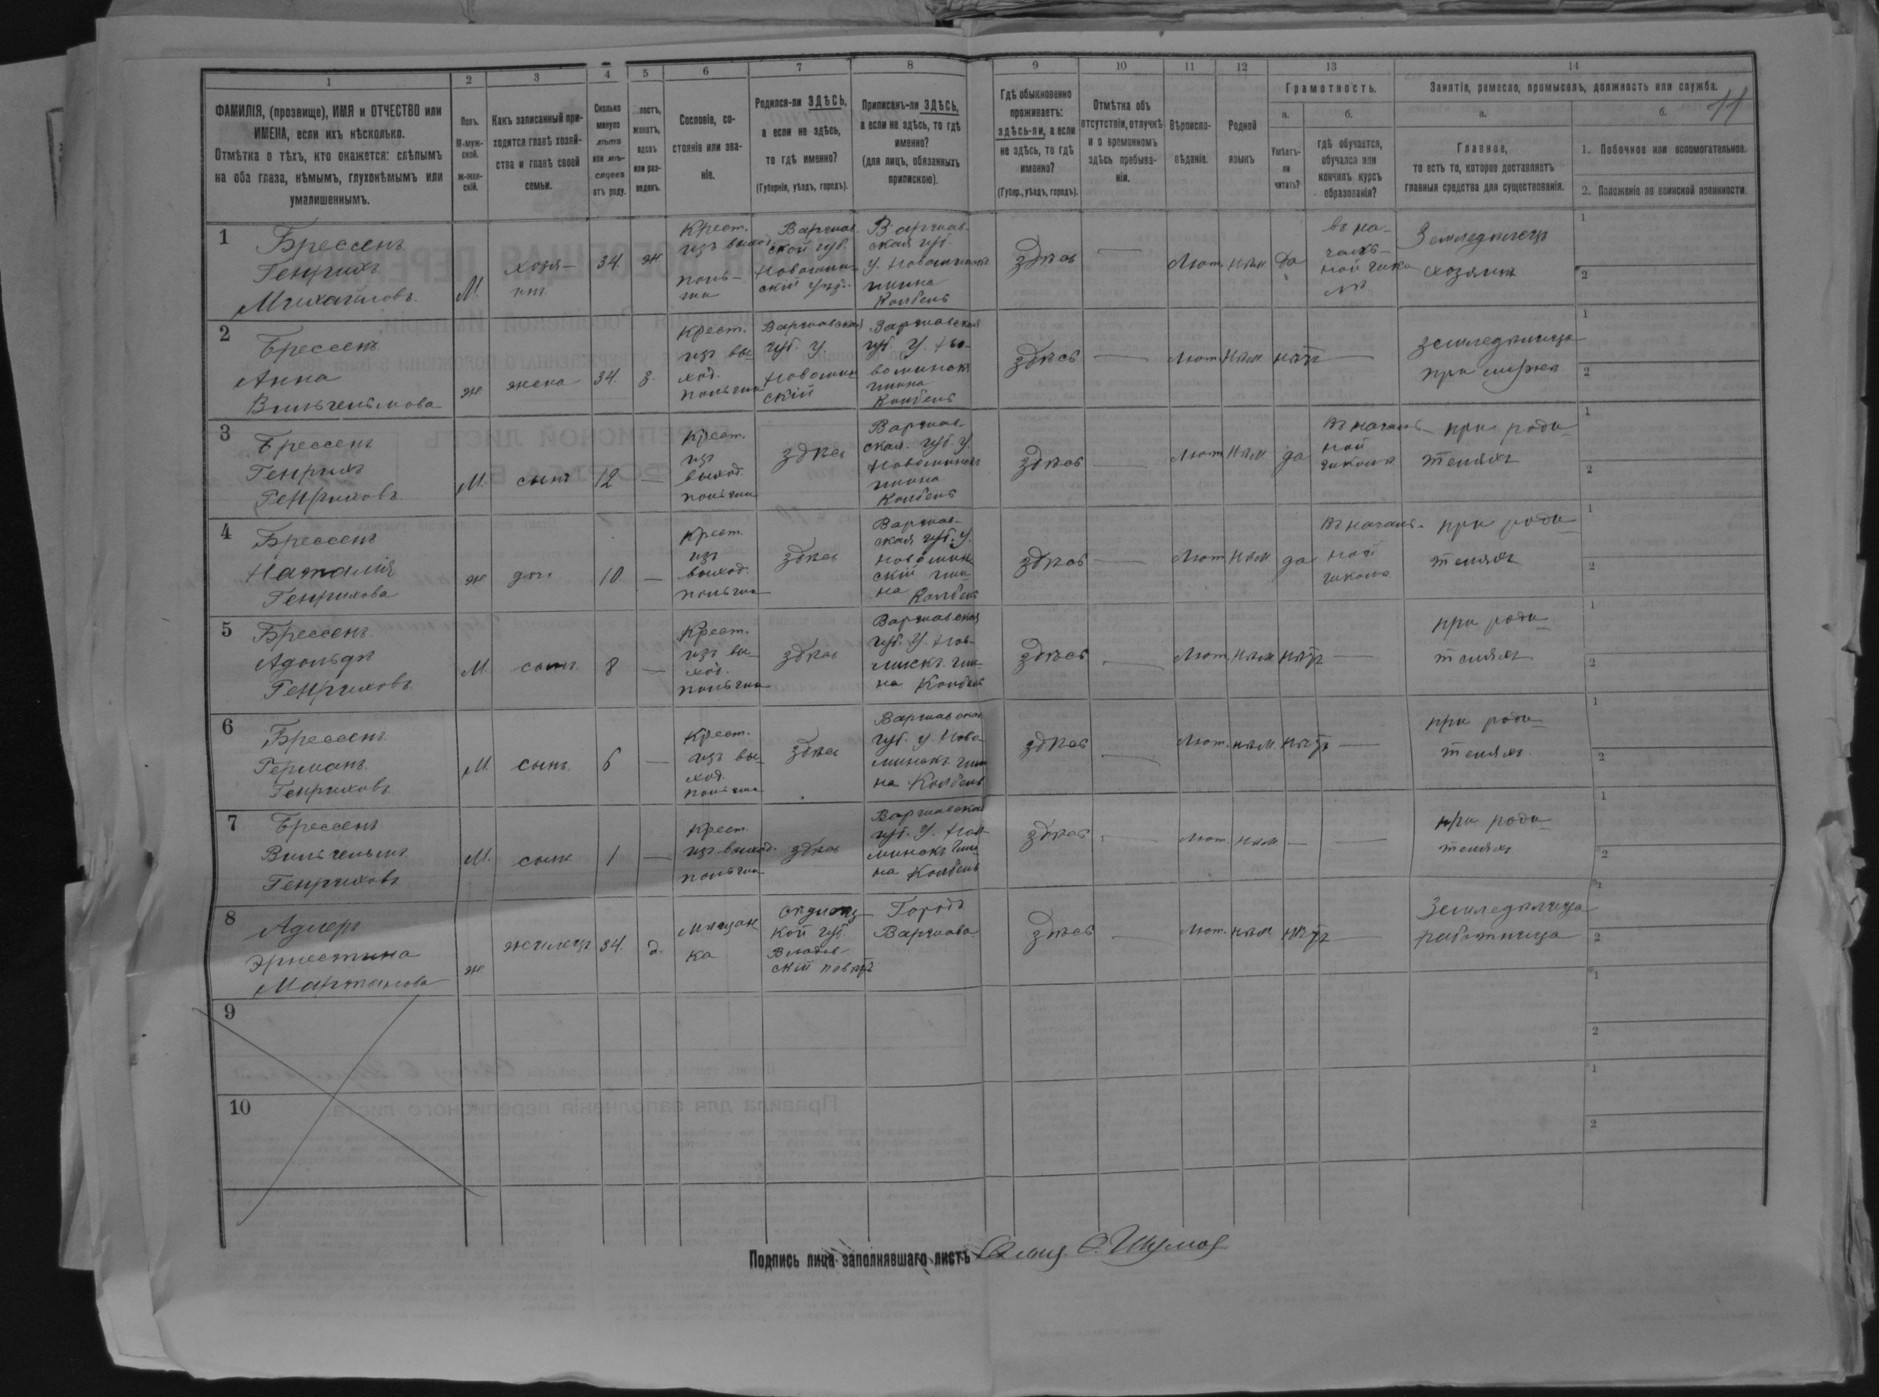 11
1 2 3 4 5 6 7 8 9 10 11 12 13 14
ФАМИЛІЯ, (прозвище), ИМЯ и ОТЧЕСТВО или
ИМЕНА, если ихъ нѣсколько.
Отмѣтка о тѣхъ, кто окажется: слѣпымъ
на оба глаза, нѣмымъ, глухонѣмымъ или
умалишеннымъ.
Полъ.
М-муж-
ской.
Ж-жен-
скій.
Какъ записанный при-
ходится главѣ хозяй-
ства и главѣ своей
семьи.
Сколько
минуло
лѣтъ
или мѣ-
сяцевъ
отъ роду.
холостъ,
женатъ,
вдовъ
или раз-
веденъ.
Сословіе, со-
стояніе или зва-
ніе.
Родился-ли ЗДѢСЬ,
а если не здѣсь,
то гдѣ именно?
(Губернія, уѣздъ, городъ).
Приписанъ-ли ЗДѢСЬ,
а если не здѣсь, то гдѣ
именно?
(для лицъ, обязанныхъ
припискою).
Гдѣ обыкновенно
проживаетъ:
здѣсь-ли, а если
не здѣсь, то гдѣ
именно?
(Губер., уѣздъ, городъ).
Отмѣтка объ
отсутствіи, отлучкѣ
и о временномъ
здѣсь пребыва-
ніи.
Вѣроиспо-
вѣданіе.
Родной
языкъ
Грамотность.
а.
Умѣетъ-
ли
читать?
б.
гдѣ обучается,
обучался или
кончилъ курсъ
образованія?
Занятія, ремесло, промыселъ, должность или служба.
а.
Главное,
то есть то, которое доставляетъ
главныя средства для существованія.
б.
1. Побочное или вспомогательное.
2. Положеніе по воинской повинности.
1
Брессенъ
Генрихъ
Михайловъ
М.
хозя-
инъ
34
ж
Крест.
изъ выход.
поль-
ши
Варшав-
ской губ.
Новомин-
скій уѣз.
Варшав-
ская губ.
у. Новоминскъ
гмина
Колбель
здѣсь
—
Лют.
нѣм
да
въ на-
чаль-
ной шко
лѣ
Земледѣлецъ
хозяинъ
1
2
2
Брессенъ
Анна
Вильгельмова
ж
жена
34.
з.
Крест.
изъ вы-
ход.
польши
Варшавская
губ. у.
Новомин
скій
Варшавская
губ. у. Но-
воминск
гмина
Колбель
здѣсь
—
Лют.
нѣм
нѣтъ
—
земледѣлица
при мужѣ
1
2
3
Брессенъ
Генрихъ
Генриховъ
М.
сынъ
12
—
Крест.
изъ
выход.
польши
здѣсь
Варшав-
ская губ. у.
Новоминск
гмина
Колбель
здѣсь
—
Лют.
нѣм
да
въ началь-
ной
школѣ
при роди-
теляхъ
1
2
4
Брессенъ
Наталія
Генрихова
ж
дочь
10
—
Крест.
изъ
выход.
польши
здѣсь
Варшав-
ская губ. у.
Новомин
скій гми-
на Колбель
здѣсь
—
Лют.
нѣм
да
въ началь-
ной
школѣ
при роди-
теляхъ
1
2
5
Брессенъ
Адольфъ
Генриховъ
М.
сынъ
8
—
Крест.
изъ вы-
ход.
польши
здѣсь
Варшавская
губ. у. Нов-
минскъ гми-
на Колбель
здѣсь
—
Лют.
нѣм
нѣтъ
—
при роди-
теляхъ
1
2
6
Брессенъ
Германъ
Генриховъ
М.
сынъ.
6
—
Крест.
изъ вы-
ход.
польши
здѣсь
Варшавская
губ. у. Ново
минскъ гми
на Колбель
здѣсь
—
Лют.
нѣм.
нѣтъ
—
при роди-
теляхъ
1
2
7
Брессенъ
Вильгельмъ
Генриховъ
М.
сынъ
1
—
Крест.
изъ выход.
польши
здѣсь
Варшавская
губ. у. Нов-
минскъ гми-
на Колбель
здѣсь
—
Лют.
нѣм
—
—
при роди-
теляхъ
1
2
8
Адлеръ
Эрнестина
Мартинова
ж
жилецъ
34.
д.
мѣщан
ка
Сѣдлец-
кой губ.
Влодав-
скій повѣтъ
Городъ
Варшава
здѣсь
—
Лют.
нѣм
нѣтъ
—
Земледѣлица
работница
1
2
9
1
2
10
1
2
Подпись лица заполнявшаго листъ